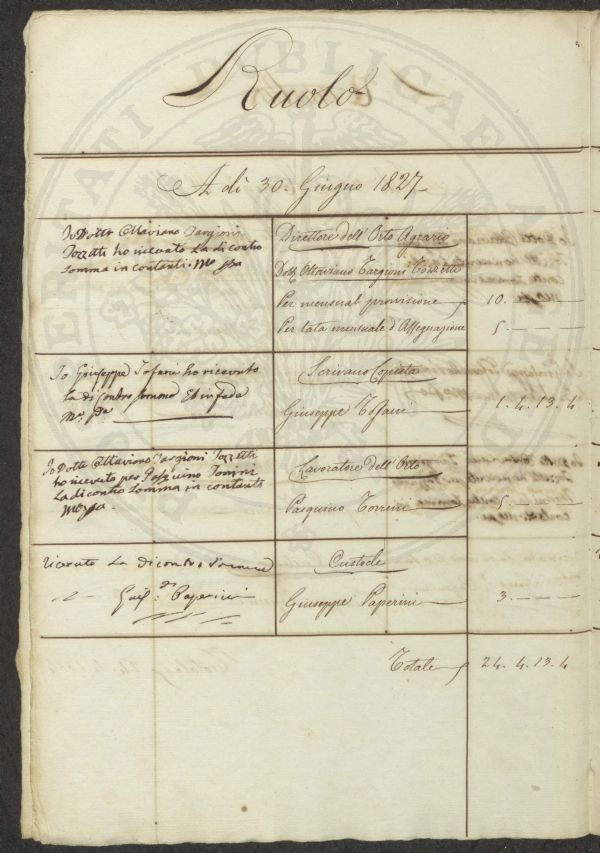 Ruolo
A dì 30. Giugno 1827
Io Dotto Ottaviano Targioni
Tozzetti ho ricevuto La di contro
Somma in contanti. Mo ppa
Direttore dell'Orto Agrario
Dott. Ottaviano Targioni Tozzetti
Per mensual provisione 10. — — —
Per rata mensuale d'Assegnazione 5. — — —
Io Giuseppe Tofani ho ricevuto
la di Contro somma Et in fede
Mo. ppa
Scrivano Copista
Giuseppe Tofani 1. 4. 13. 4
Io Dotto Ottaviano Targioni Tozzetti
ho ricevuto per Pasquino Torrini
La di contro Somma in contanti
Mo ppa.
Lavoratore dell'Orto
Pasquino Torrini 5. — — —
ricevuto La di contro Somma
Giuse. Paperini
Custode
Giuseppe Paperini 3. — — —
Totale 24. 4. 13. 4